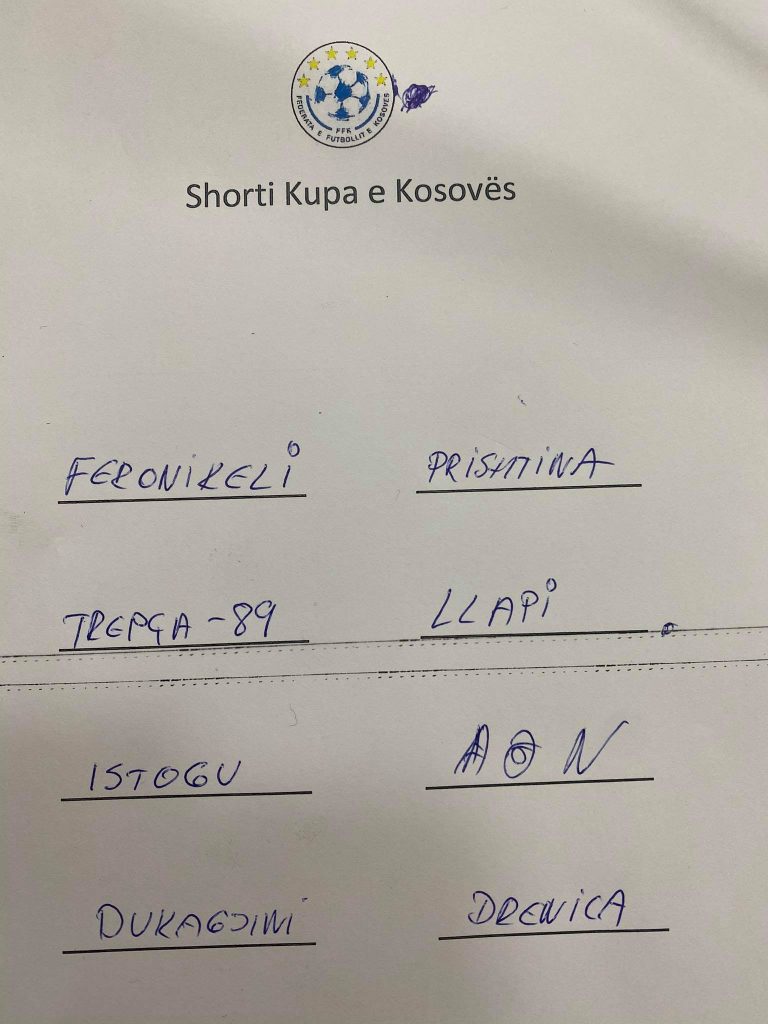 FEDERATA E FUTBOLLIT E KOSOVËS
FFK
Shorti Kupa e Kosovës
FERONIKELI PRISHTINA
TREPÇA-89 LLAPI
ISTOGU A&N
DUKAGJINI DRENICA